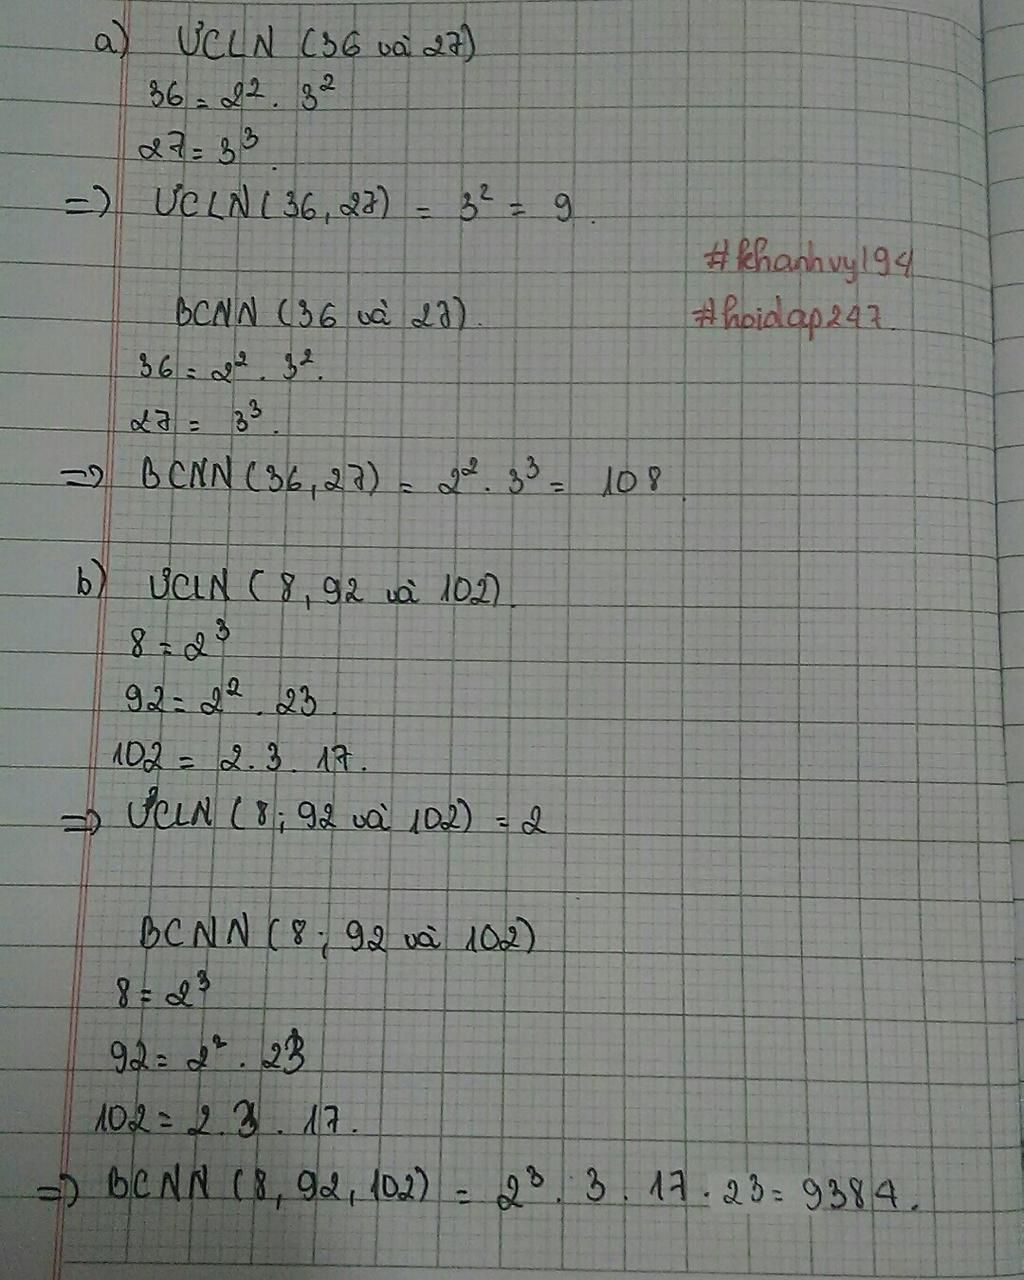 a) ƯCLN (36 và 27)
36 = 2². 3²
27 = 3³.
=> ƯCLN (36, 27) = 3² = 9.
#khanhvy194
BCNN (36 và 27).
#hoidap247
36 = 2². 3².
27 = 3³.
=> BCNN (36, 27) = 2². 3³ = 108
b) ƯCLN (8, 92 và 102).
8 = 2³
92 = 2². 23
102 = 2. 3. 17.
=> ƯCLN (8; 92 và 102) = 2
BCNN (8; 92 và 102)
8 = 2³
92 = 2². 23
102 = 2. 3. 17.
=> BCNN (8, 92, 102) = 2³. 3. 17. 23 = 9384.